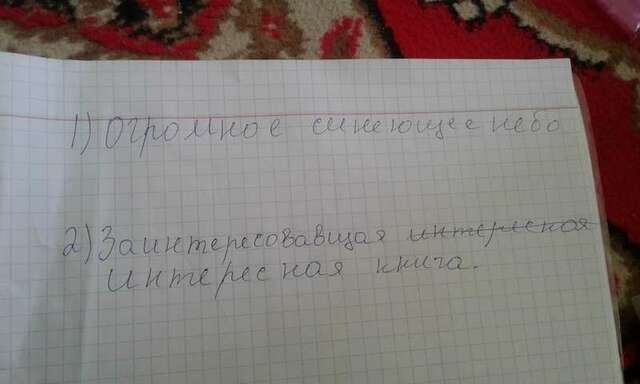 1) Огромное синеющее небо
2) Заинтересовавщая интересная
интересная книга.